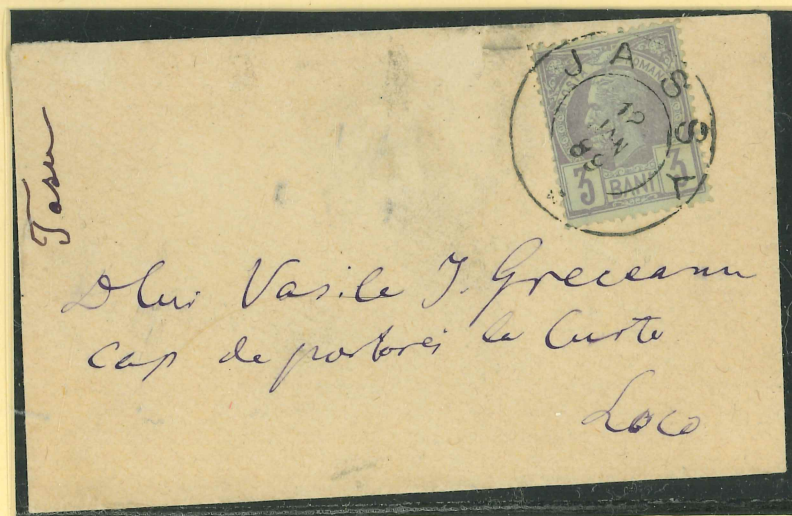 JASSY
12
IAN
ROMAN
3 BANI 3
Dlui Vasile I. Greceanu
cap de portărei la Curte
Loco